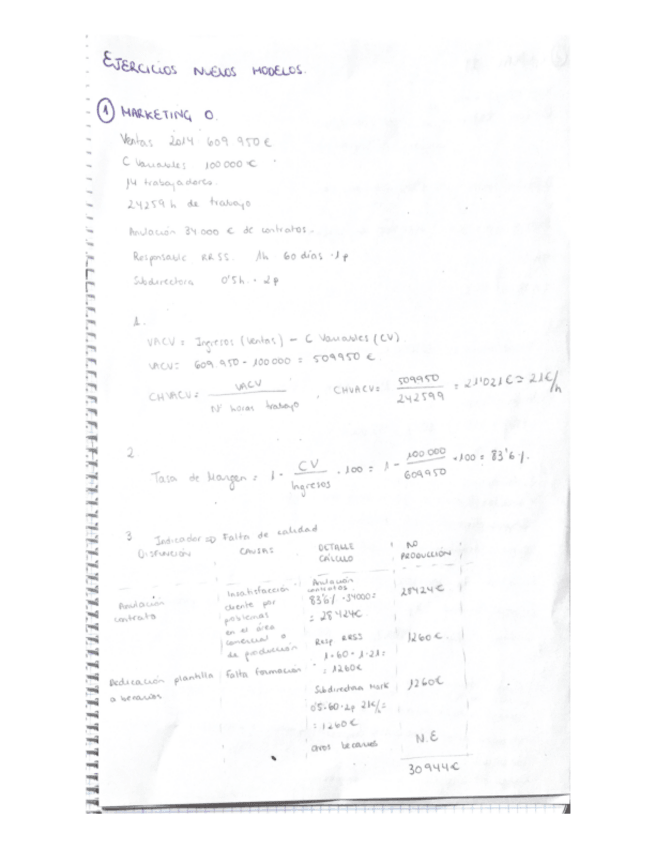 EJERCICIOS NUEVOS MODELOS.
① MARKETING O.
Ventas 2014 609 950 €
C Variables 100 000 €
14 trabajadores.
24259 h de trabajo
Anulación 34 000 € de contratos.
Responsable RR.SS. 1h 60 días · 1p
Subdirectora 0'5h. · 2p
1.
VACV = Ingresos (Ventas) - C Variables (CV)
VACV = 609.950 - 100 000 = 509950 €
CHVACV = VACV / Nº horas trabajo , CHVACV = 509950 / 242599 = 21'021 € ≃ 21 €/h
2.
Tasa de Margen = 1 - CV / Ingresos · 100 = 1 - 100 000 / 609950 · 100 = 83'6 %.
3 Indicador ⇒ Falta de calidad
DISFUNCIÓN CAUSAS DETALLE CÁLCULO NO PRODUCCIÓN
Anulación contrato
Insatisfacción
cliente por
problemas
en el área
comercial o
de producción
Anulación
contratos.
83'6% · 34000 =
= 28424€
28424 €
Resp RRSS
1 · 60 · 1 · 21 =
= 1260€
1260 €
Dedicación plantilla
a becarios
Falta formación
Subdirectora Mark
0'5 · 60 · 2p 21€/h =
= 1260 €
1260 €
otros becarios
N.E
30944 €